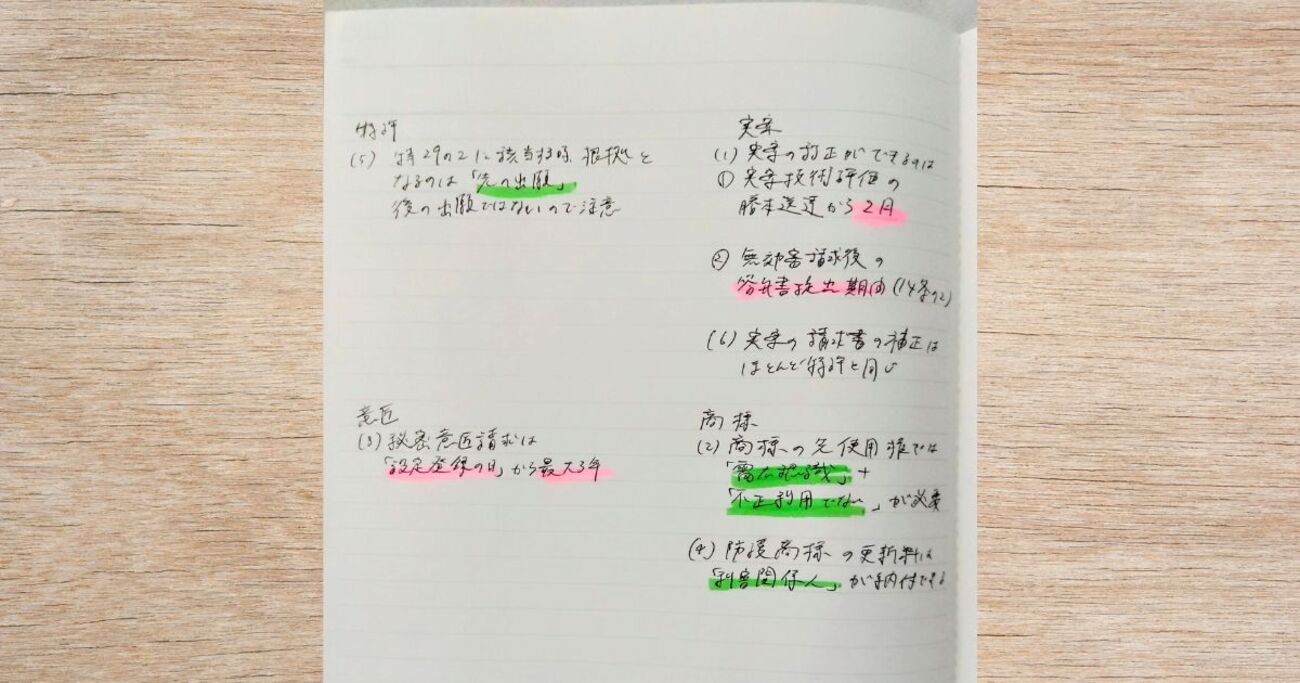 特許
(5) 特29の2に該当する時、根拠と
なるのは「先の出願」
後の出願ではないので注意
実案
(1) 実案の訂正ができるのは
① 実案技術評価の
謄本送達から2月
② 無効審請求後の
答弁書提出期間(14条の2)
(6) 実案の請求書の補正は
ほとんど特許と同じ
意匠
(3) 秘密意匠請求は
「設定登録の日」から最大3年
商標
(2) 商標の先使用権では
「需要者認識」+
「不正利用でない」が必要
(4) 防護商標の更新料は
「利害関係人」が納付できる